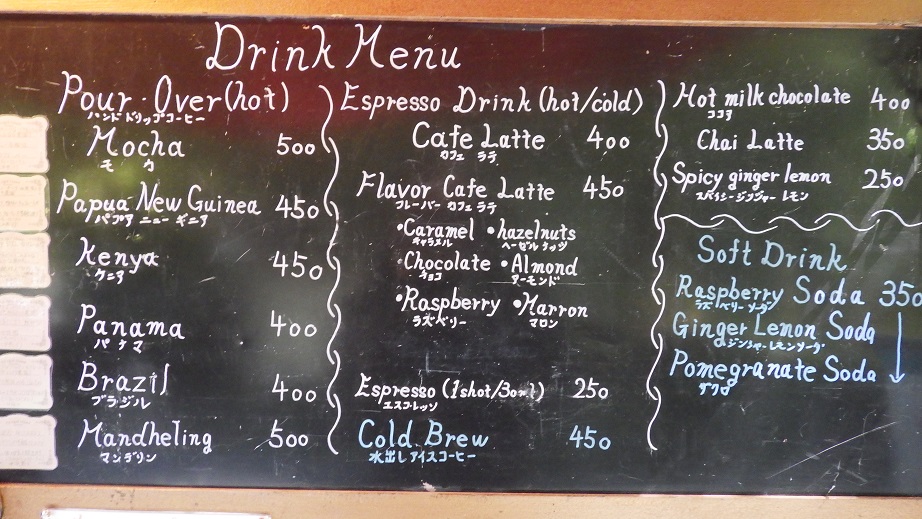 Drink Menu
Pour・Over(hot)
ハンドドリップコーヒー
Mocha 500
モカ
Papua New Guinea 450
パプア ニュー ギニア
Kenya 450
ケニア
Panama 400
パナマ
Brazil 400
ブラジル
Mandheling 500
マンデリン
Espresso Drink (hot/cold)
Cafe Latte 400
カフェ ラテ
Flavor Cafe Latte 450
フレーバー カフェ ラテ
・Caramel ・hazelnuts
キャラメル ヘーゼルナッツ
・Chocolate ・Almond
チョコ アーモンド
・Raspberry ・Marron
ラズベリー マロン
Espresso (1shot/30ml) 250
エスプレッソ
Cold Brew 450
水出しアイスコーヒー
Hot milk chocolate 400
ココア
Chai Latte 350
Spicy ginger lemon 250
スパイシージンジャーレモン
Soft Drink
Raspberry Soda 350
ラズベリーソーダ
Ginger Lemon Soda
ジンジャーレモンソーダ
Pomegranate Soda
ザクロ